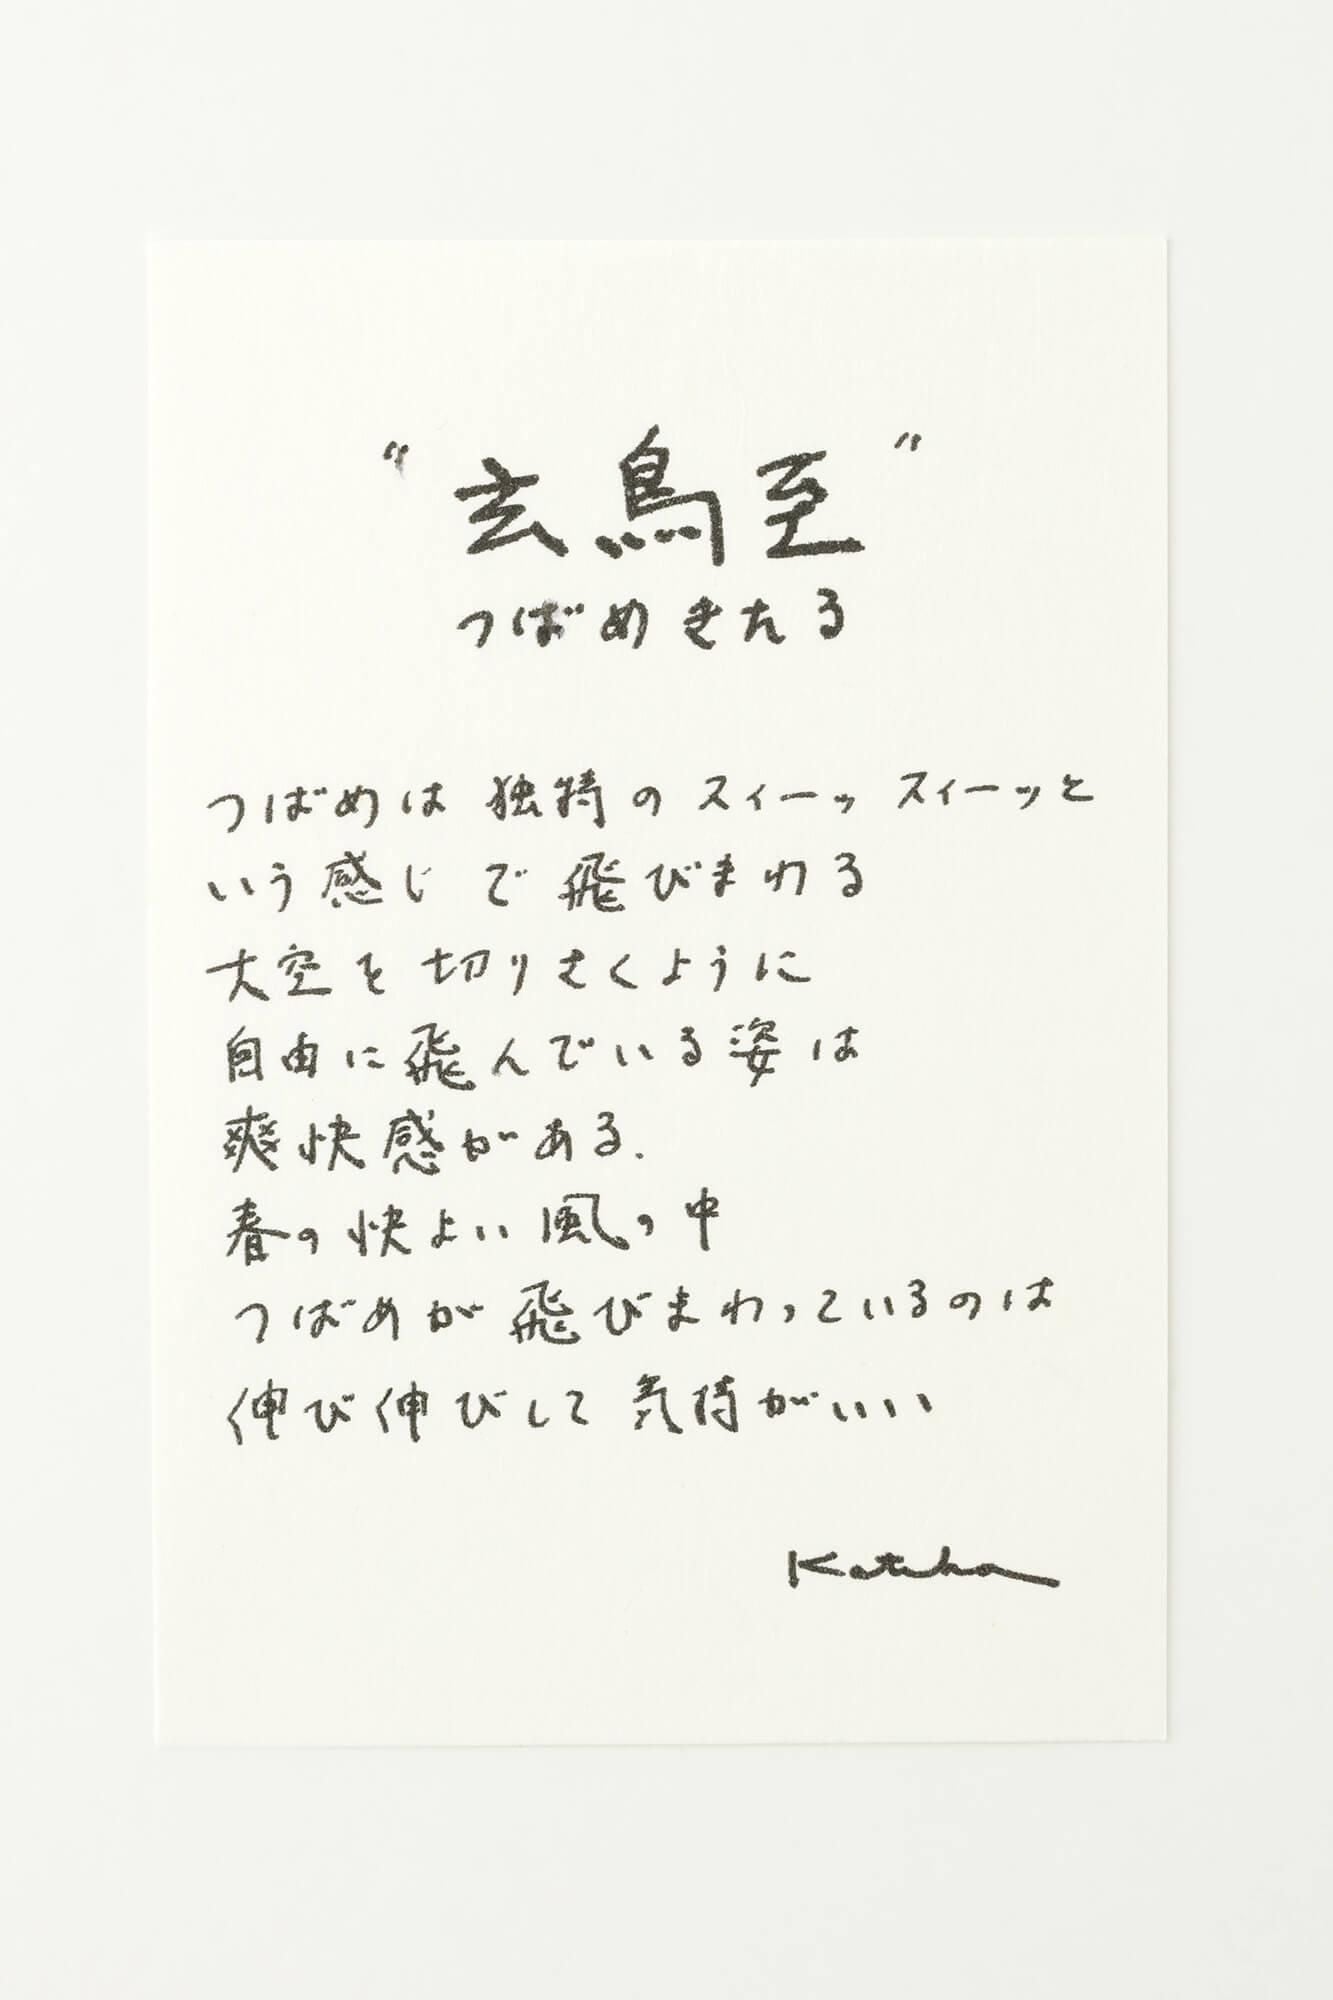 "玄鳥至"
つばめきたる
つばめは 独特の スィーッ スィーッと
いう感じ で 飛びまわる
大空を 切りさくように
自由に飛んでいる姿は
爽快感がある.
春の快よい風の中
つばめが 飛びまわっているのは
伸び伸びして 気持がいい